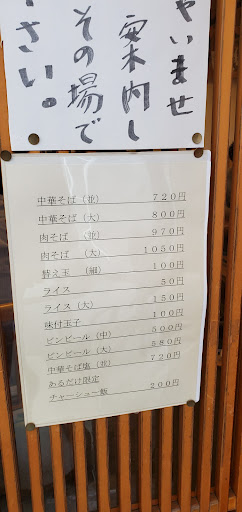 やいませ
案内し
その場で
さい。
中華そば（並） 720円
中華そば（大） 800円
肉そば （並） 970円
肉そば （大） 1050円
替え玉 （細） 100円
ライス 50円
ライス（大） 150円
味付玉子 100円
ビンビール（中） 500円
ビンビール（大） 580円
中華そば塩（並） 720円
あるだけ限定
チャーシュー飯 200円